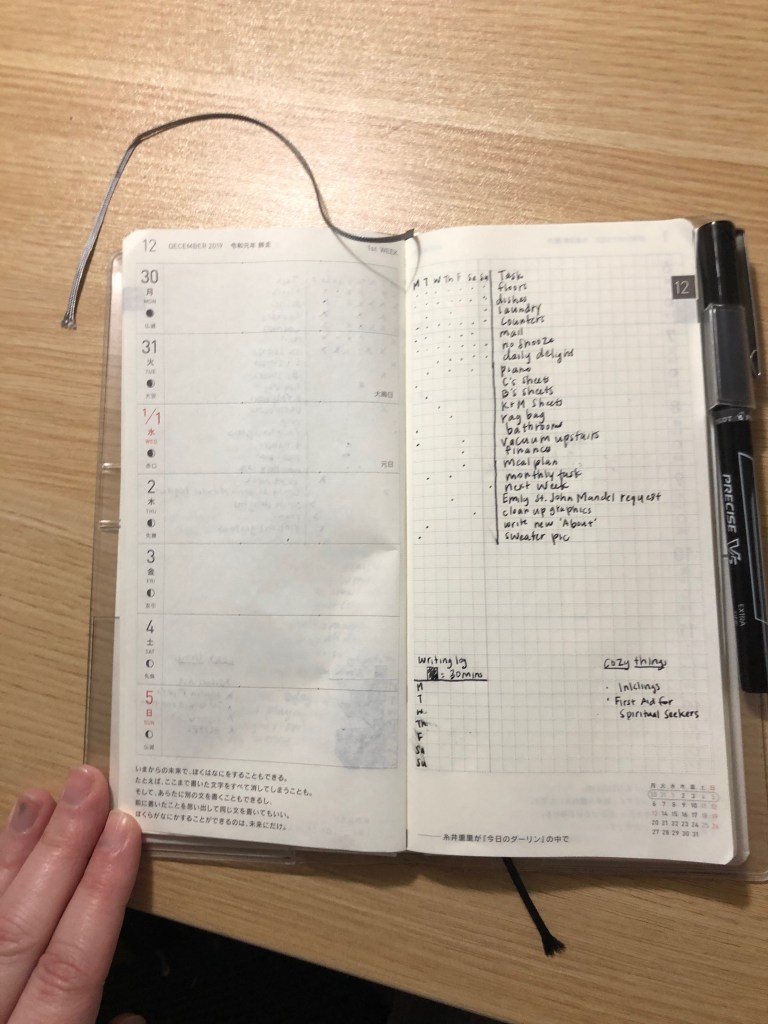 12 DECEMBER 2019 令和元年 師走
1st WEEK
30
月
MON
仏滅
31
火
TUE
大安
大晦日
1/1
水
WED
赤口
元日
2
木
THU
先勝
3
金
FRI
友引
4
土
SAT
先負
5
日
SUN
仏滅
いまからの未来で、ぼくはなにをすることもできる。
たとえば、ここまで書いた文字をすべて消してしまうことも。
そして、あらたに別の文を書くこともできるし、
前に書いたことを思い出して同じ文を書いてもいい。
ぼくらがなにかすることができるのは、未来にだけ。
12
M T W Th F Sa Su Task
floors
dishes
laundry
counters
mail
no snooze
daily delight
piano
C's sheets
B's sheets
K+M sheets
rag bag
bathroom
vacuum upstairs
finance
meal plan
monthly task
next week
Emily St. John Mandel request
clean up graphics
write new 'About'
sweater pic
Writing log
= 30 mins
M
T
W
Th
F
Sa
Su
Cozy things
· Inklings
· First Aid for
Spiritual Seekers
月 火 水 木 金 土 日
30 31 1 2 3 4 5
6 7 8 9 10 11 12
13 14 15 16 17 18 19
20 21 22 23 24 25 26
27 28 29 30 31
糸井重里が『今日のダーリン』の中で
PRECISE V5
EXTRA